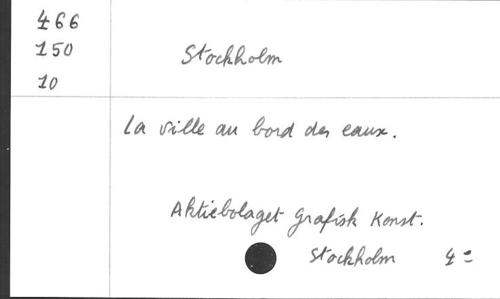 466
150
10
Stockholm
La ville au bord des eaux.
Aktiebolaget Grafisk Konst.
Stockholm 4=